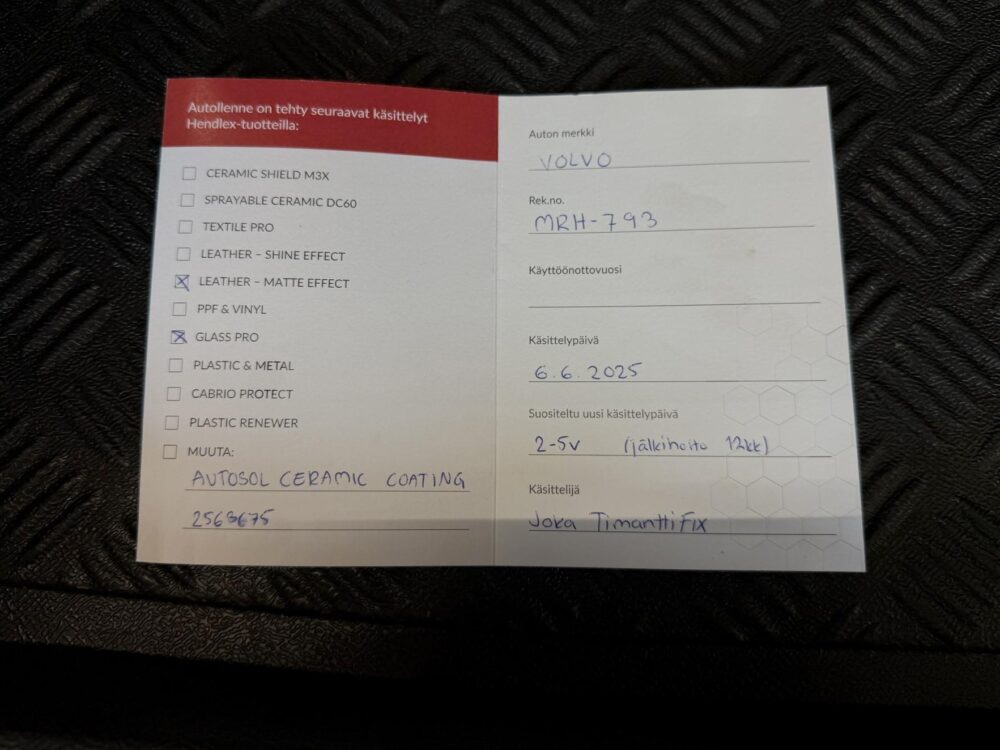 Autollenne on tehty seuraavat käsittelyt
Hendlex-tuotteilla:
CERAMIC SHIELD M3X
SPRAYABLE CERAMIC DC60
TEXTILE PRO
LEATHER – SHINE EFFECT
LEATHER – MATTE EFFECT
PPF & VINYL
GLASS PRO
PLASTIC & METAL
CABRIO PROTECT
PLASTIC RENEWER
MUUTA:
AUTOSOL CERAMIC COATING
Auton merkki
VOLVO
Rek.no.
MRH-793
Käyttöönottovuosi
Käsittelypäivä
6.6.2025
Suositeltu uusi käsittelypäivä
2-5v (jälkihoito 12kk)
Käsittelijä
Joka TimanttiFix